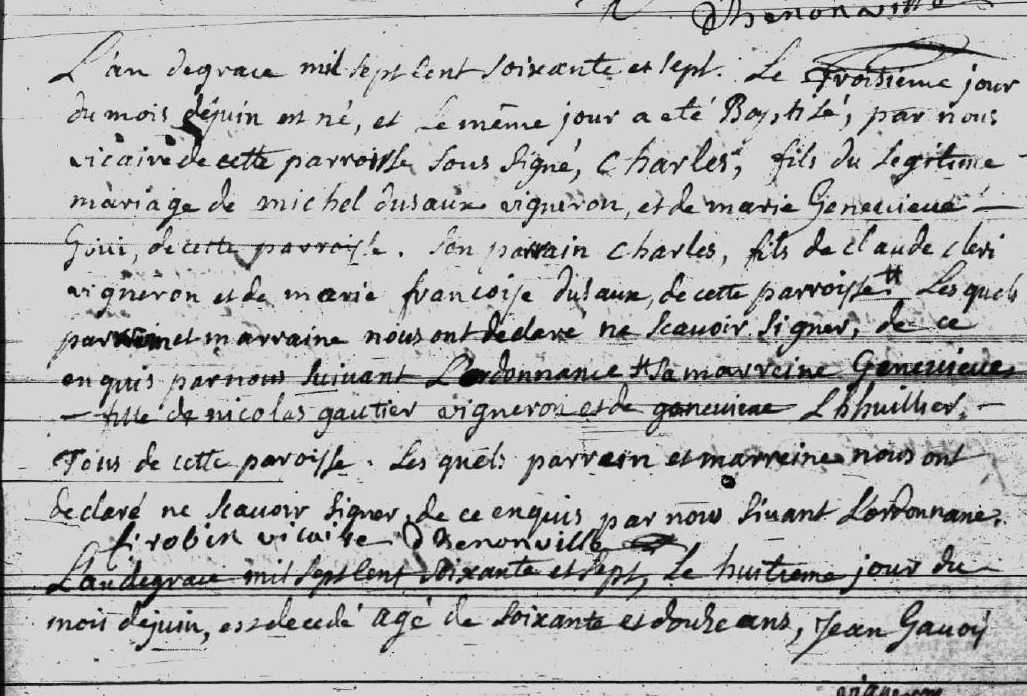 d'henonville
L'an degrace mil sept cent soixante et sept. Le troisième jour
du mois déjuin est né, et Le même jour a eté Baptisé, par nous
vicaire de cette parroisse sous signé, Charles, fils du legitime
mariage de michel dusaux vigneron, et de marie Genevieve
Goui, de cette parroisse. Son parrain Charles, fils de Claude cleri
vigneron et de marie francoise dusaux, de cette parroisse # Les quels
parrain et marraine nous ont declaré ne scavoir signer, de ce
enquis par nous suivant L'ordonnance # Sa marreine Genevieve
fille de nicolas gautier vigneron et de genevieve Lhhuillier,
Tous de cette paroisse. Les quels parrein et marreine nous ont
declaré ne scavoir signer, de ce enquis par nous sivant L'ordonnance.
f. robin vicaire d'henonville
L'an degrace mil sept cent soixante et sept, Le huitieme jour du
mois déjuin, est decedé agé de soixante et douze ans, Jean Gavoÿ
vigneron